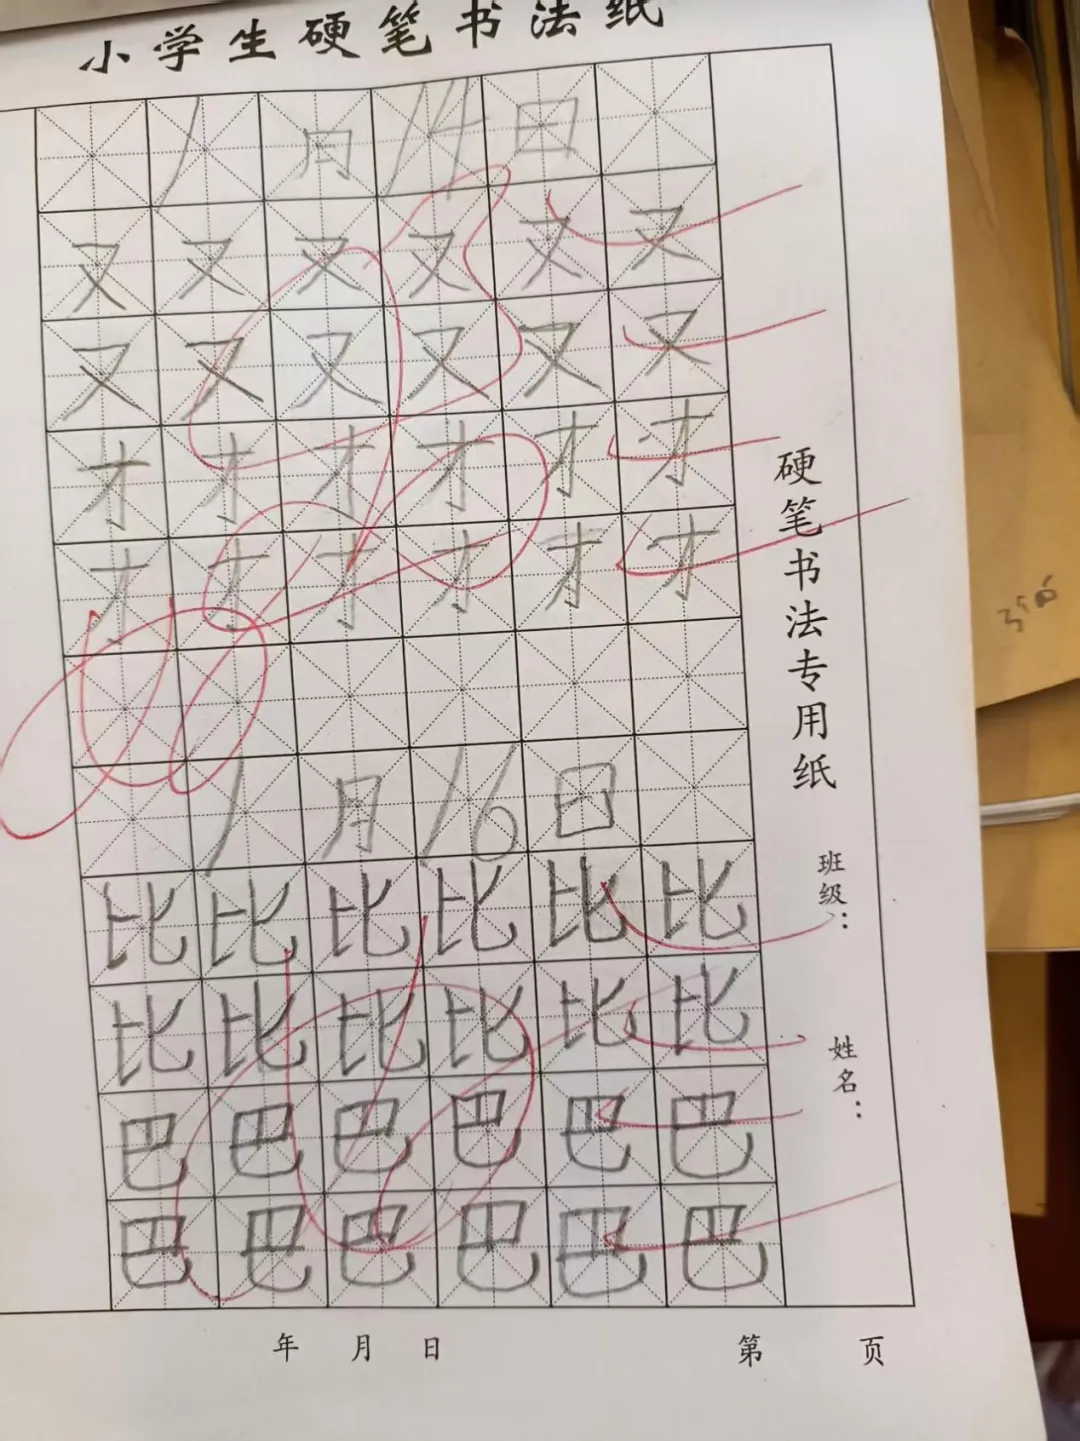 小学生硬笔书法纸
1月14日
又又又又又又
又又又又又又
才才才才才才
才才才才才才
1月16日
比比比比比比
比比比比比比
巴巴巴巴巴巴
巴巴巴巴巴巴
硬笔书法专用纸
班级：
姓名：
年 月 日
第 页